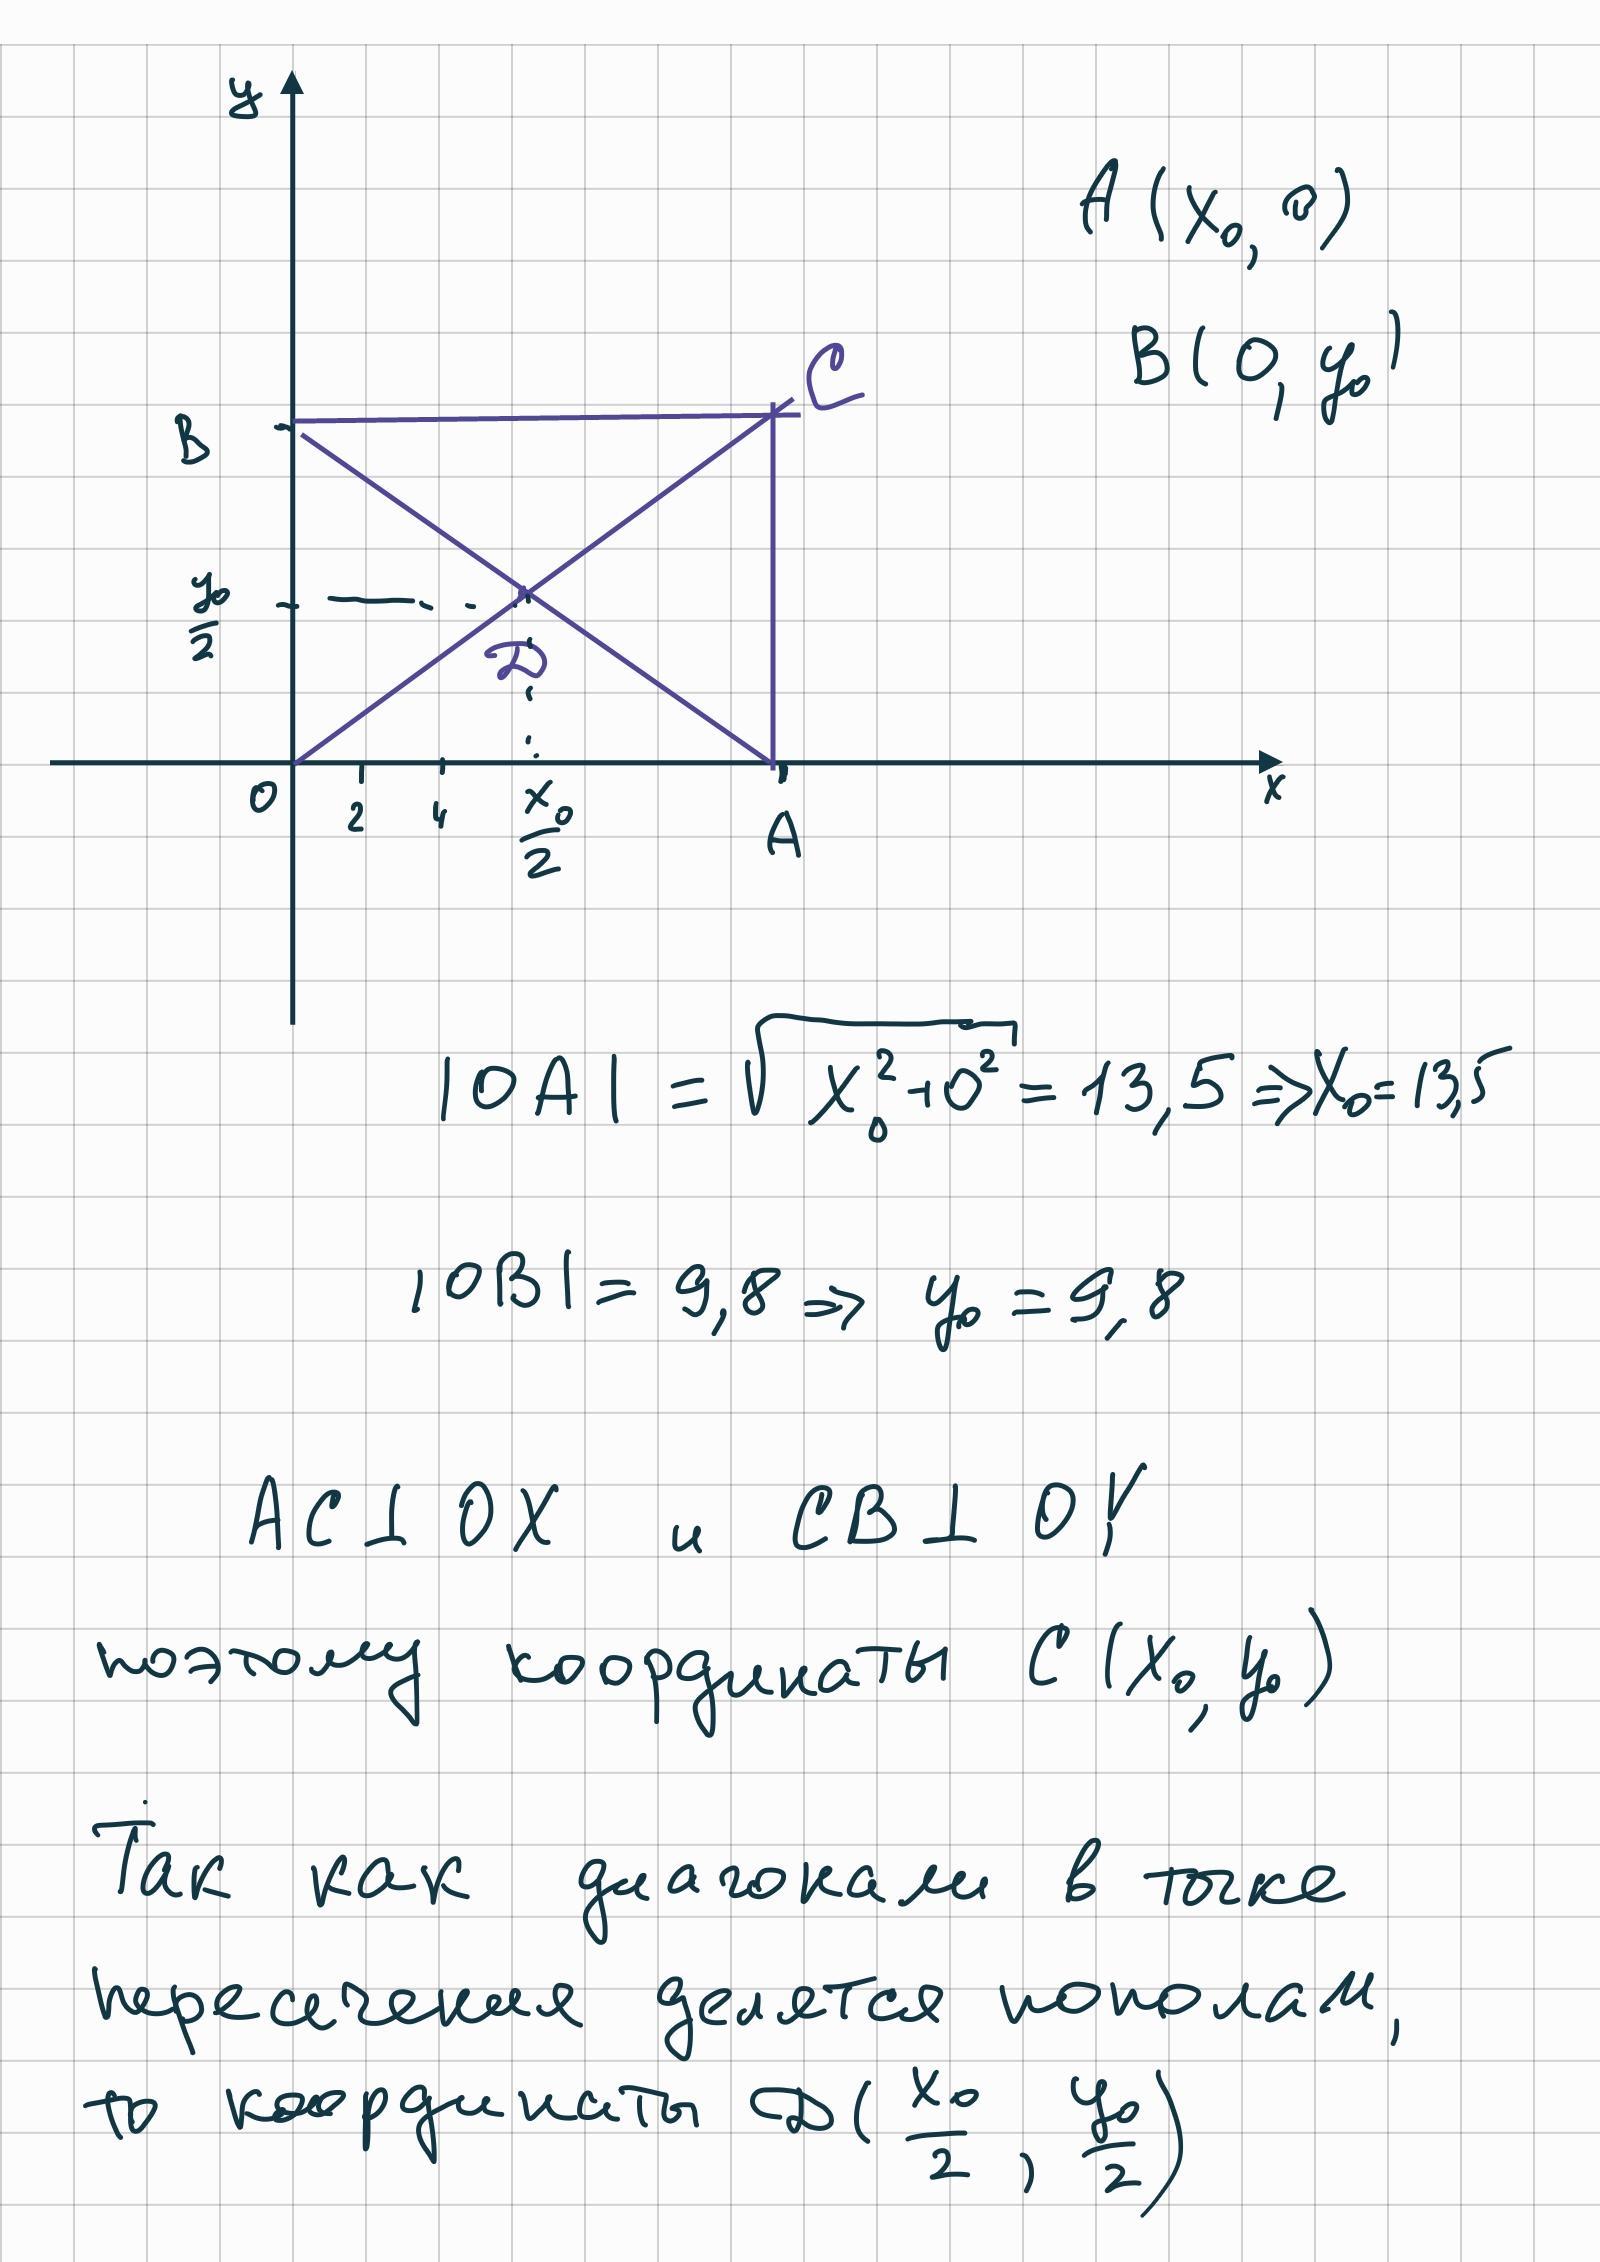 y
A(x₀, 0)
B(0, y₀)
C
B
y₀/2
D
0 2 4 x₀/2 A x
|OA| = √(x₀² + 0²) = 13,5 => x₀ = 13,5
|OB| = 9,8 => y₀ = 9,8
AC ⊥ OX и CB ⊥ OY
поэтому координаты C(x₀, y₀)
Так как диагонали в точке
пересечения делятся пополам,
то координаты D(x₀/2, y₀/2)